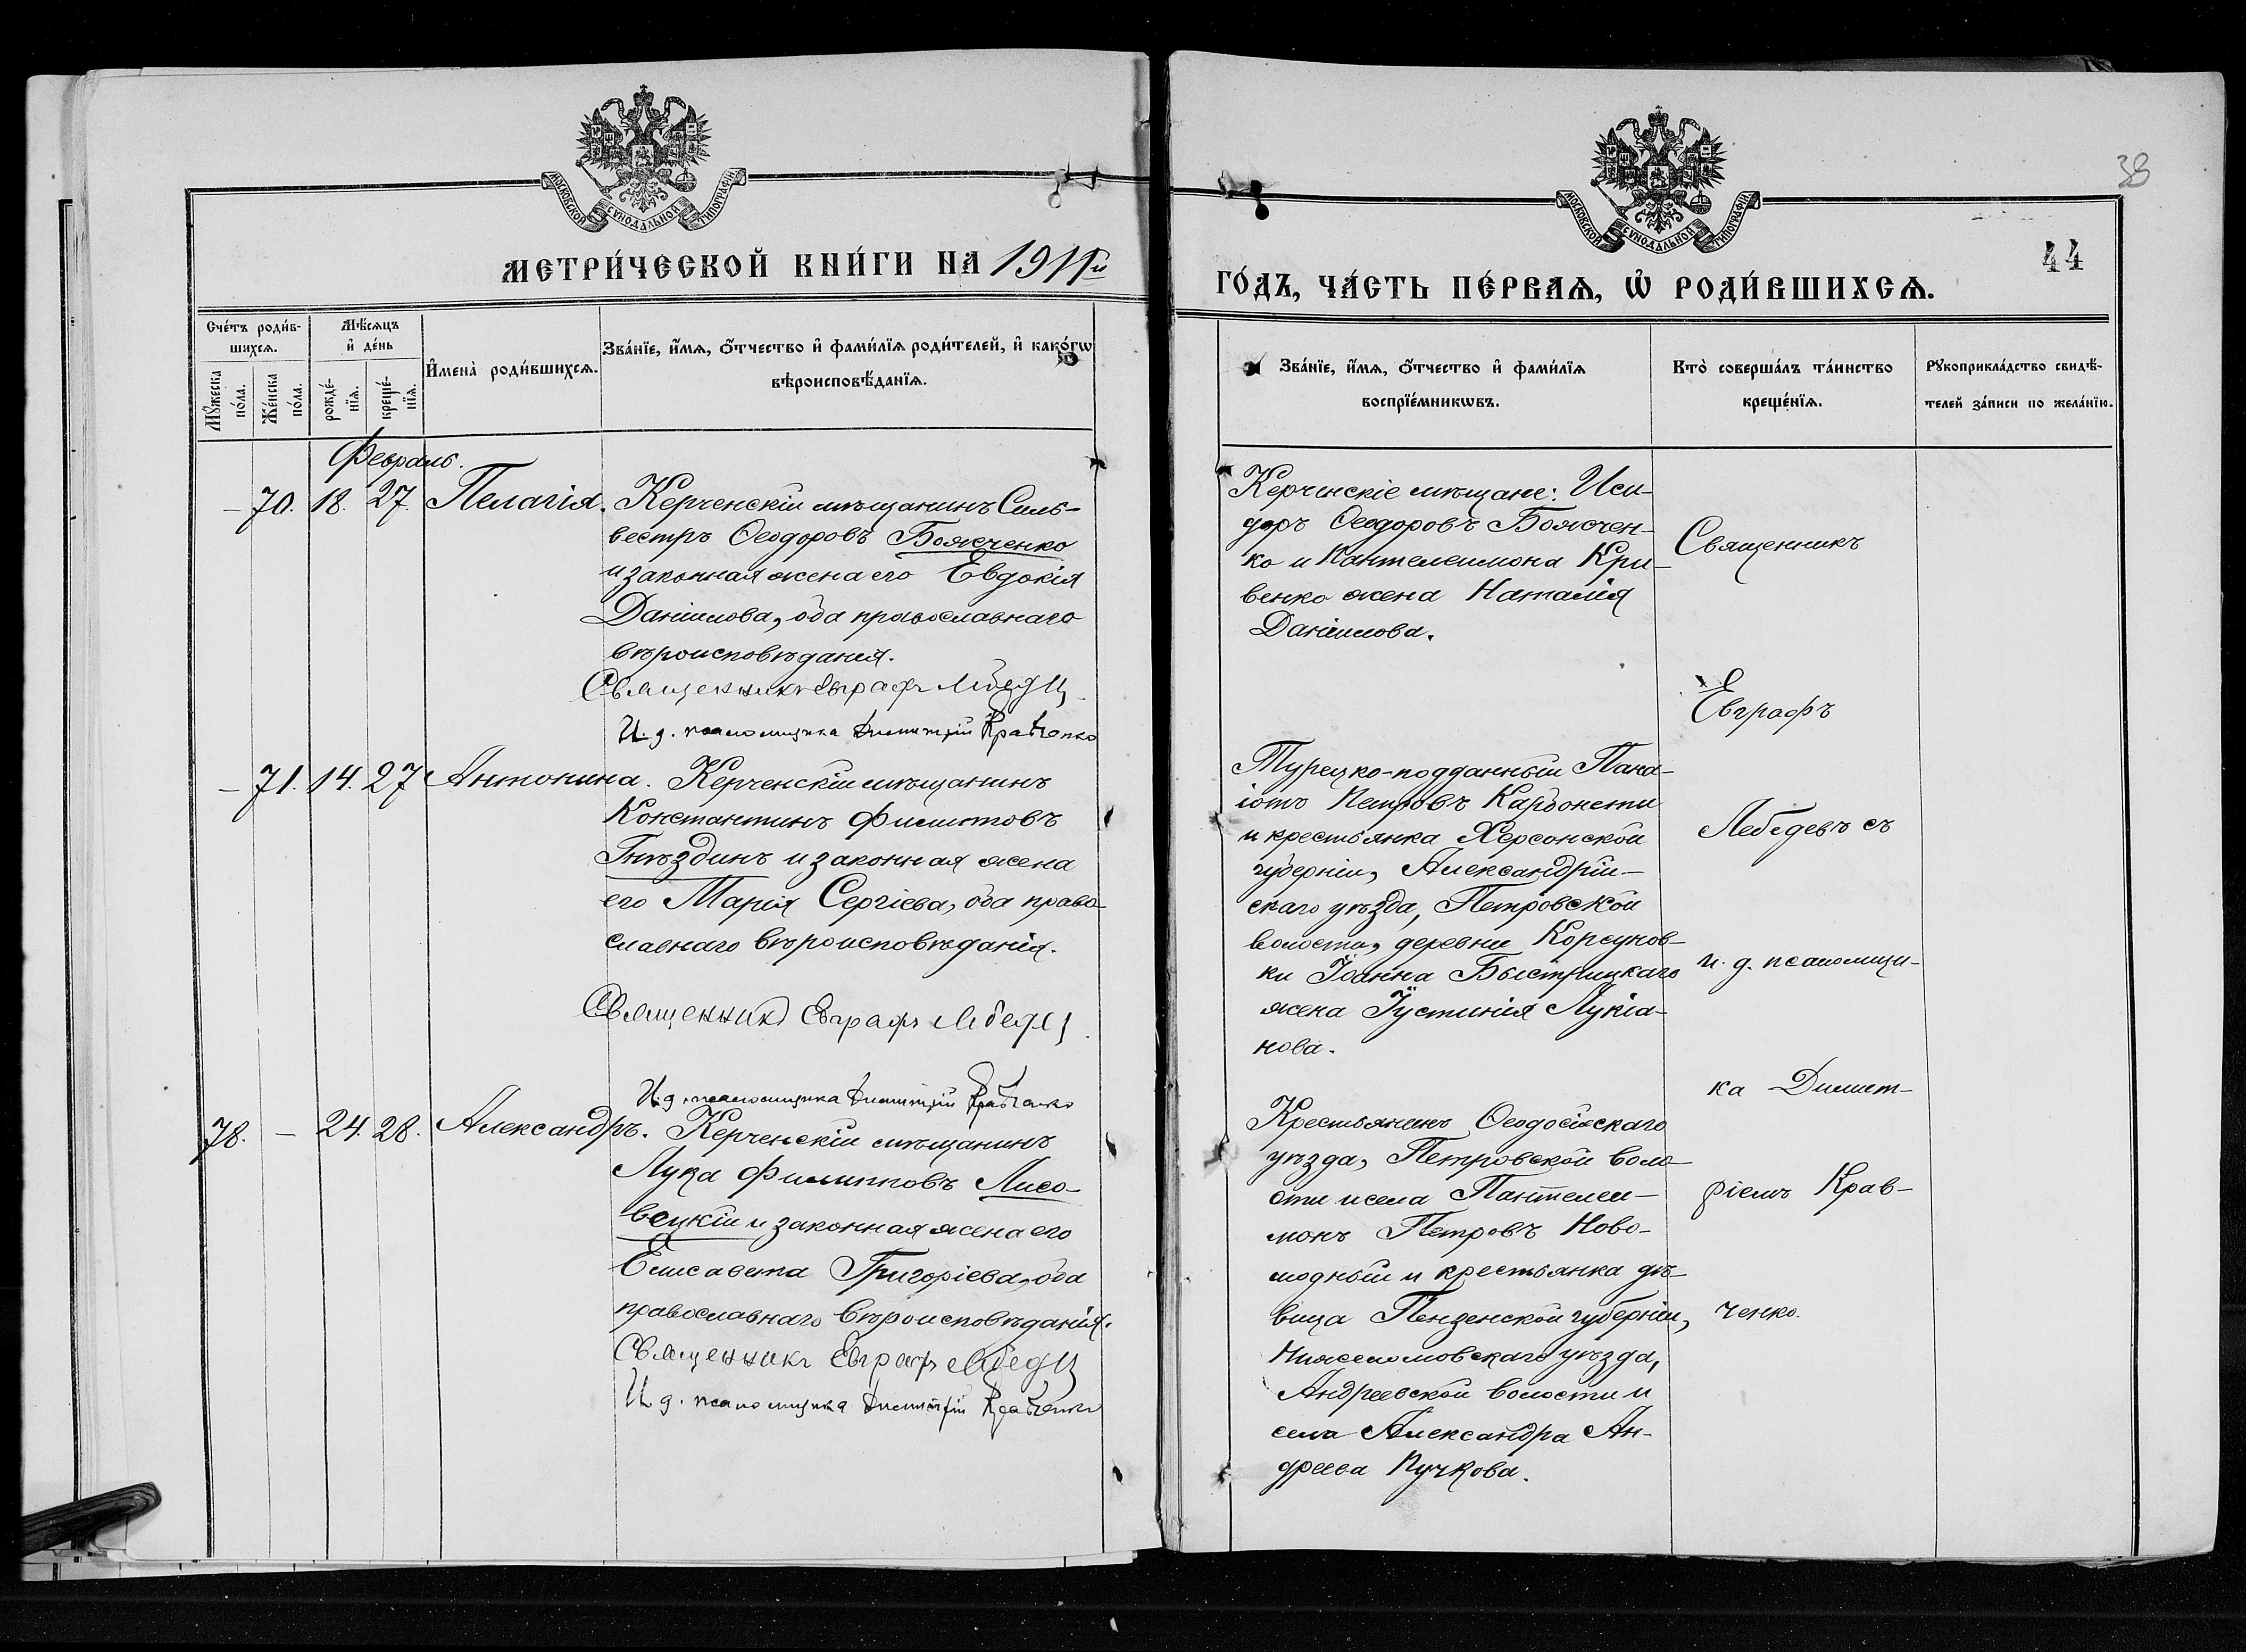 МОСКОВСКОЙ СѴНОДАЛЬНОЙ ТИПОГРАФІИ
МЕТРИ́ЧЕСКОЙ КНИ́ГИ НА 1911й
Сче́тъ роди́в-
шихсѧ.
Мѣ́сѧцъ
и҆ де́нь
Мꙋ́жеска
по́ла.
Же́нска
по́ла.
рожде́-
нїѧ.
креще́-
нїѧ.
И҆мена̀ роди́вшихсѧ.
Зва́нїе, и҆́мѧ, ѻ҆́тчество и҆ фами́лїѧ роди́телей, и҆ како́гѡ
вѣроисповѣ́данїѧ.
Февраль.
– 70. 18. 27. Пелагія. Керченскій мѣщанинъ Силь-
вестръ Ѳеодоровъ Боясченко
и законная жена его Евдокія
Даніилова, оба православнаго
вѣроисповѣданія.
Священникъ Евграфъ Лебедевъ
И. д. псаломщика Димитрій Кравченко
– 71. 14. 27 Антонина. Керченскій мѣщанинъ
Константинъ Филиповъ
Гнѣздинъ и законная жена
его Марія Сергіева, оба право-
славнаго вѣроисповѣданія.
Священникъ Евграфъ Лебедевъ
И. д. псаломщика Димитрій Кравченко
78. – 24. 28. Александръ. Керченскій мѣщанинъ
Лука Филипповъ Лисо-
вецкій и законная жена его
Елисавета Григоріева, оба
православнаго вѣроисповѣданія.
Священникъ Евграфъ Лебедевъ
И. д. псаломщика Димитрій Кравченко
38
МОСКОВСКОЙ СѴНОДАЛЬНОЙ ТИПОГРАФІИ
44
ГО́ДЪ, ЧА́СТЬ ПЕ́РВАѦ, Ѡ҆ РОДИ́ВШИХСѦ.
Зва́нїе, и҆́мѧ, ѻ҆́тчество и҆ фами́лїѧ
воспрїе́мникѡвъ.
Кто̀ соверша́лъ та́инство
креще́нїѧ.
Рꙋкоприкла́дство свидѣ́-
телей за́писи по жела́нїю.
Керченскіе мѣщане: Иси-
доръ Ѳеодоровъ Боясчен-
ко и Пантелеимона Кри-
венко жена Наталія
Даніилова.
Турецко-подданный Пана-
іотъ Петровъ Карбонети
и крестьянка Херсонской
губерніи, Александрій-
скаго уѣзда, Петровской
волости, деревни Корсунов-
ки Іоанна Быстрицкаго
жена Іустинія Лукіа-
нова.
Крестьянинъ Ѳеодосійскаго
уѣзда, Петровской воло-
сти и села Пантелеи-
монъ Петровъ Ново-
модный и крестьянка дѣ-
вица Пензенской губерніи,
Нижнеломовскаго уѣзда,
Андреевской волости и
села Александра Ан-
дреева Пучкова.
Священникъ
Евграфъ
Лебедевъ съ
и. д. псаломщи-
ка Димит-
ріемъ Крав-
ченко.